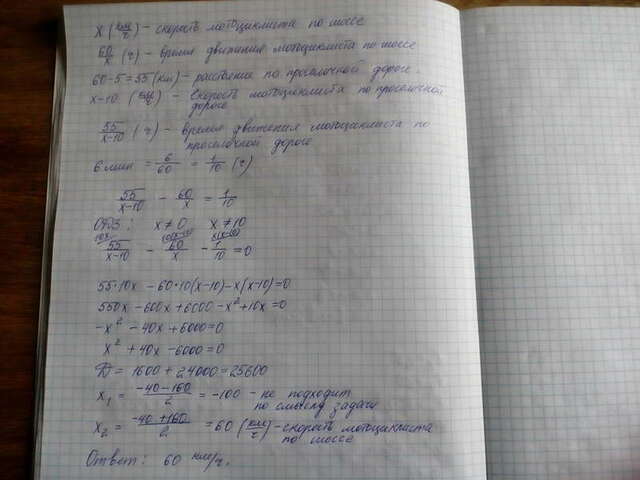 x (км/ч) - скорость мотоциклиста по шоссе
60/x (ч) - время движения мотоциклиста по шоссе
60-5=55 (км) - расстояние по проселочной дороге.
x-10 (км/ч) - скорость мотоциклиста по проселочной
дороге
55/x-10 (ч) - время движения мотоциклиста по
проселочной дороге
6 мин = 6/60 = 1/10 (ч)
55/x-10 - 60/x = 1/10
ОДЗ: x≠0 x≠10
10x 10(x-10) x(x-10)
55/x-10 - 60/x - 1/10 = 0
55·10x - 60·10(x-10) - x(x-10)=0
550x - 600x + 6000 - x² + 10x = 0
-x² - 40x + 6000=0
x² + 40x - 6000=0
D = 1600 + 24000=25600
x₁ = -40-160/2 = -100 - не подходит
по смыслу задачи
x₂ = -40+160/2 = 60 (км/ч) - скорость мотоциклиста
по шоссе
Ответ: 60 км/ч.